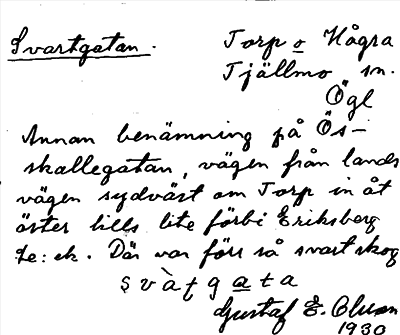 Svartgatan.
Torp o Högra
Tjällmo sn.
Ögl
Annan benämning på Ös-
skallegatan, vägen från lands
vägen sydväst om Torp in åt
öster tills lite förbi Eriksberg
Le: ek. Där var förr så svart skog
svàtgata
Gustaf E. Olson
1930